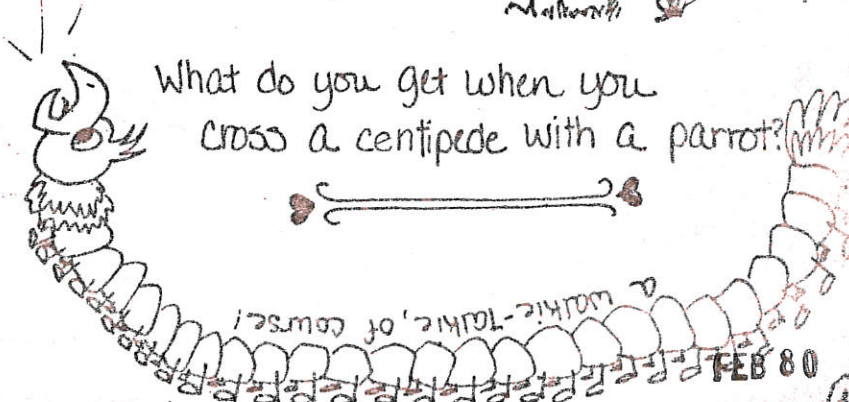 What do you get when you
cross a centipede with a parrot?
a walkie-Talkie, of course!
FEB 80